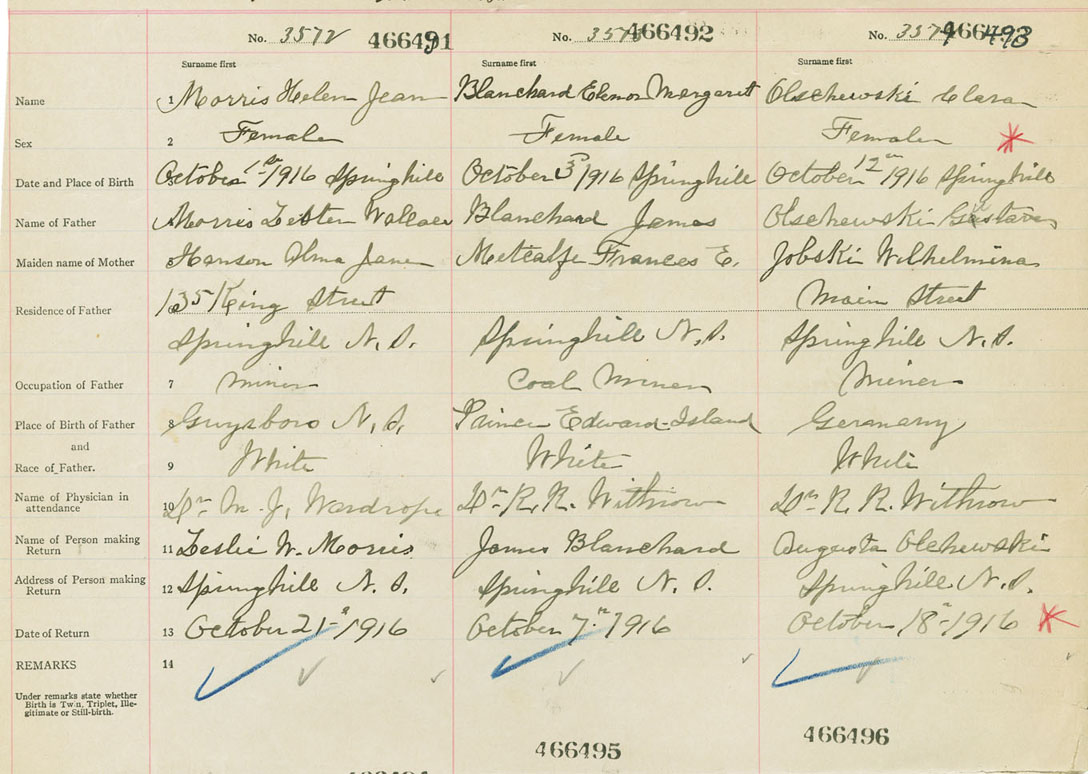 No. 3572 466491 No. 466492 No. 466493
Surname first Surname first Surname first
Name 1 Morris Helen Jean Blanchard Elenor Margaret Olschewski Clara
Sex 2 Female Female Female *
Date and Place of Birth October 1st 1916 Springhill October 3rd 1916 Springhill October 12th 1916 Springhill
Name of Father Morris Wallace Blanchard James Olschewski
Maiden name of Mother Jane Metcalfe Frances E. Jobski Wilhelmina
Residence of Father 135 King Street Main Street
Springhill N.S. Springhill N.S. Springhill N.S.
Occupation of Father 7 Miner Coal Miner Miner
Place of Birth of Father 8 Guysboro N.S. Prince Edward-Island Germany
and
Race of Father. 9 White White White
Name of Physician in attendance 10 Dr M. J. Wardrope Dr R. R. Withrow Dr R. R. Withrow
Name of Person making Return 11 Leslie W. Morris James Blanchard Augusta Olchewski
Address of Person making Return 12 Springhill N.S. Springhill N.S. Springhill N.S.
Date of Return 13 October 21st 1916 October 7th 1916 October 18th 1916 *
REMARKS 14
Under remarks state whether
Birth is Twin, Triplet, Ille-
gitimate or Still-birth.
466495 466496